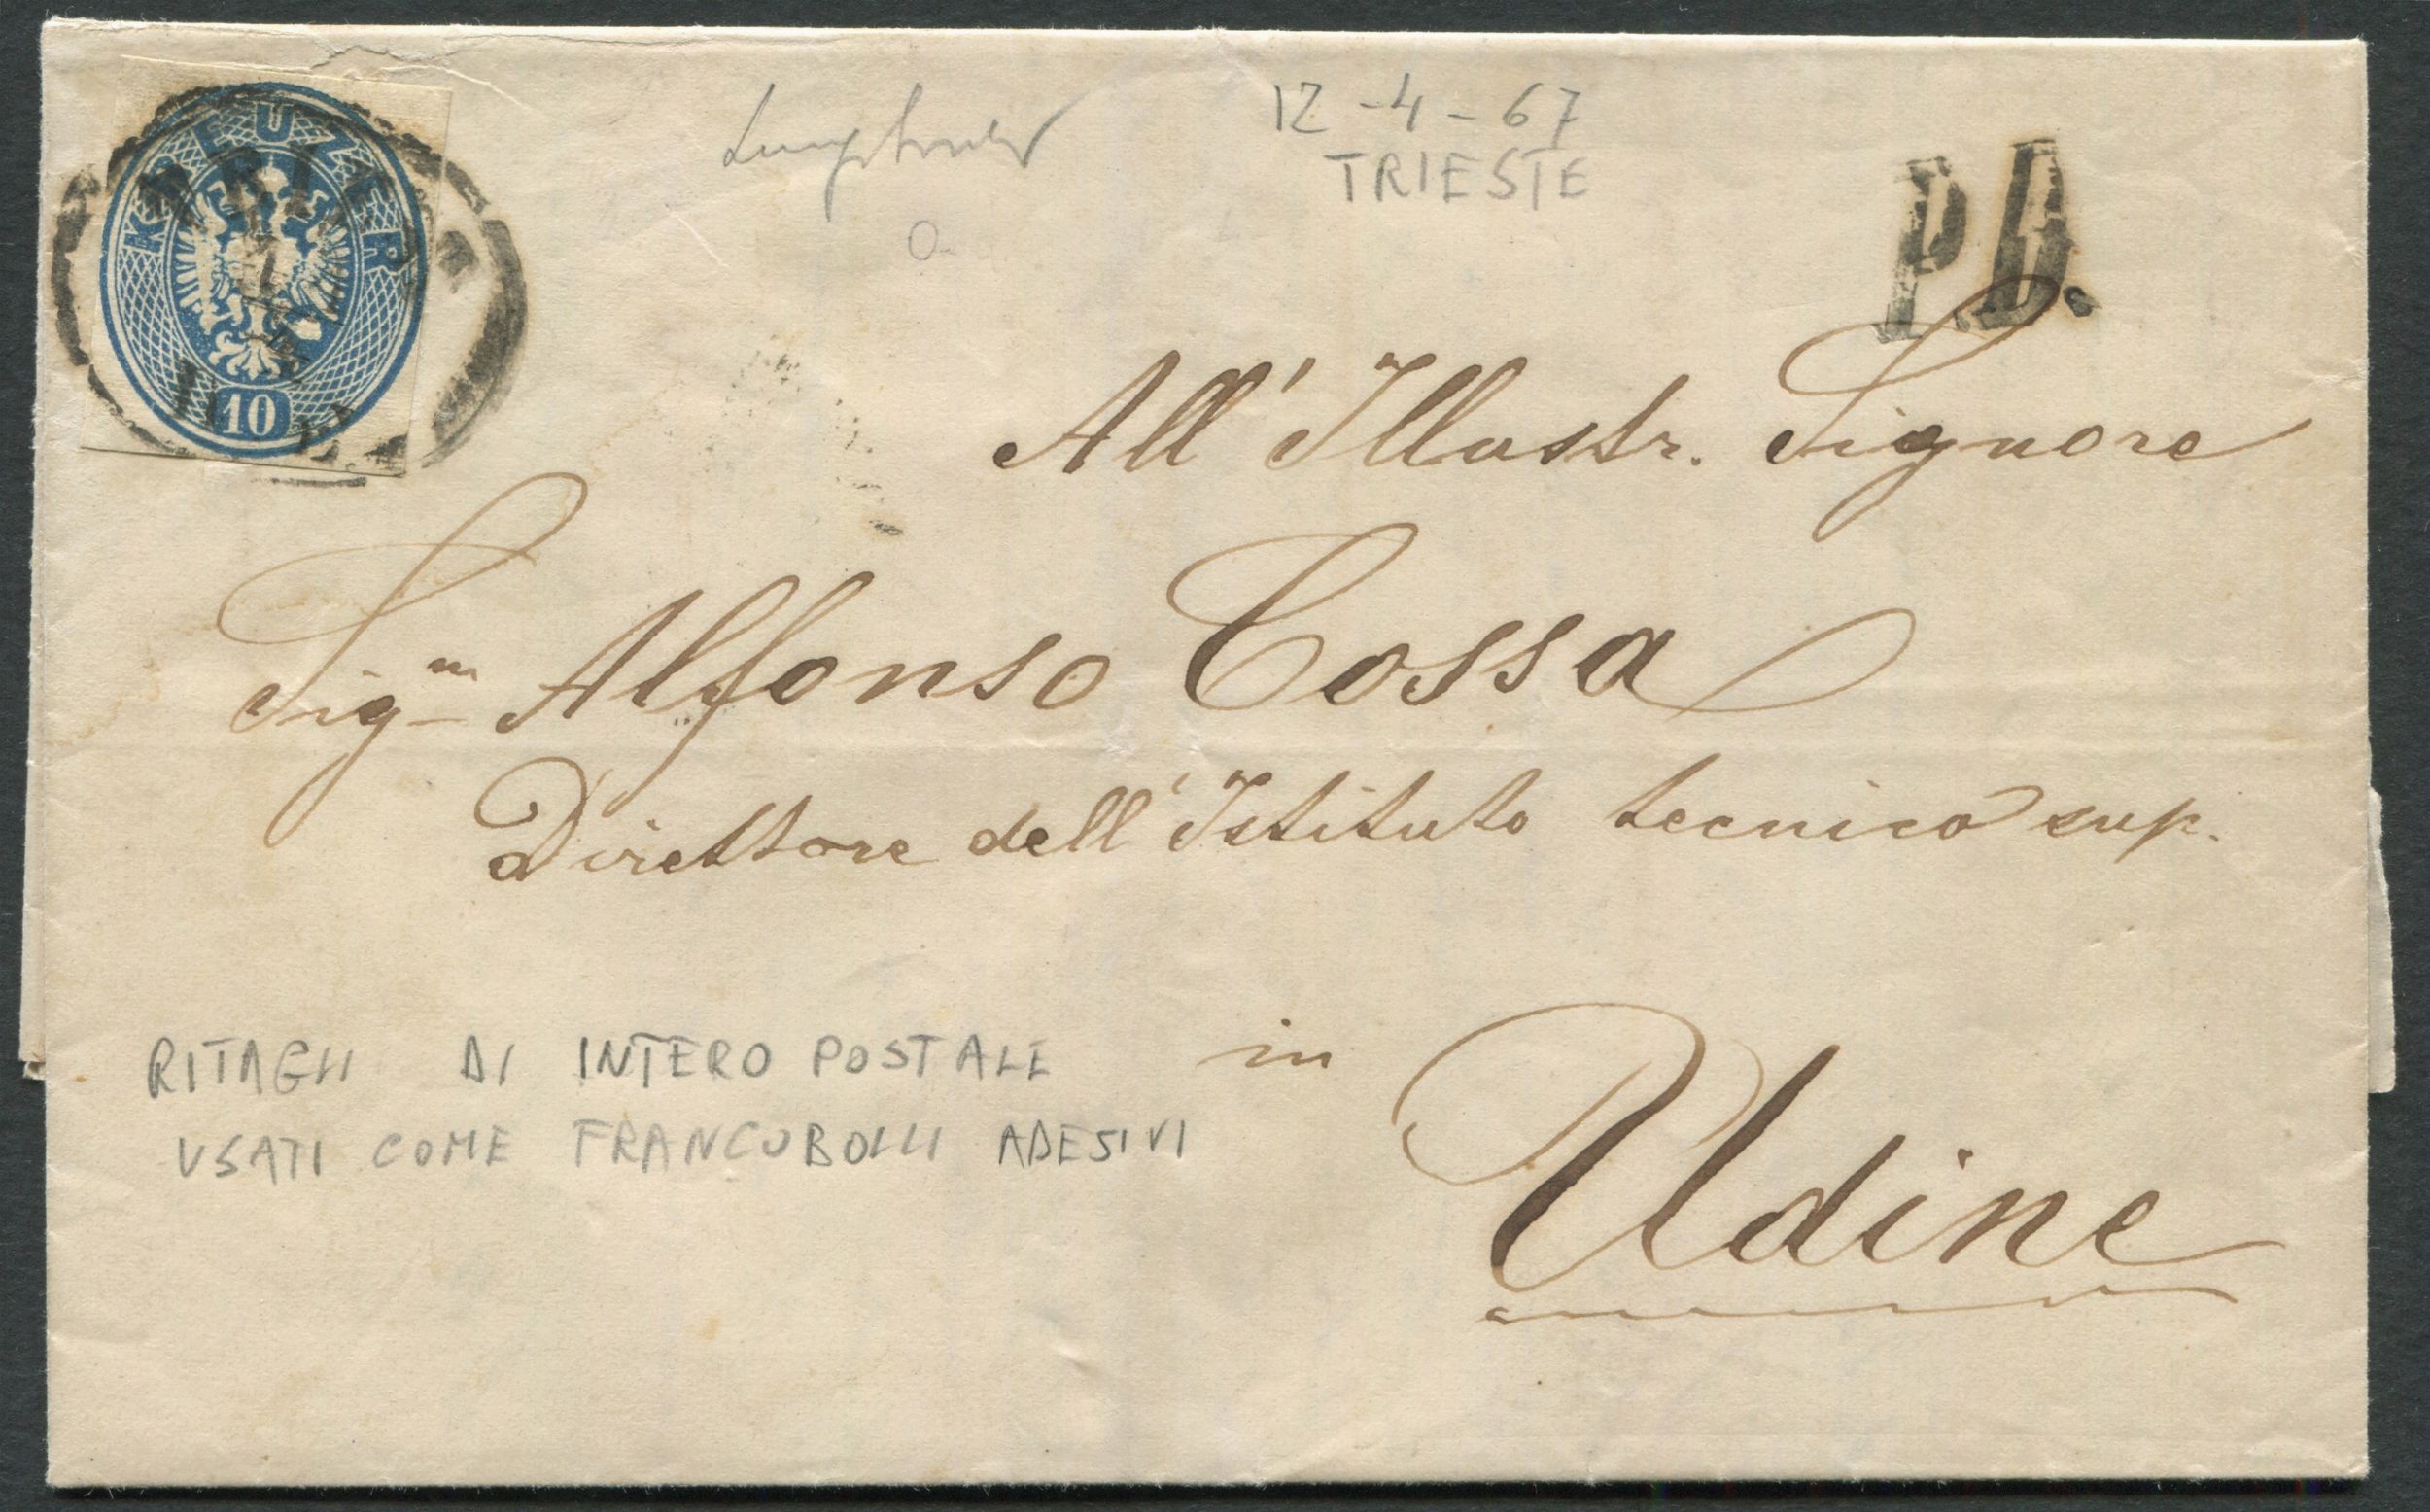 KREUZER
10
12-4-67
TRIESTE
P.D.
All'Illustr. Signore
Sigm Alfonso Cossa
Direttore dell'Istituto tecnico sup.
in
Udine
RITAGLI DI INTERO POSTALE
USATI COME FRANCOBOLLI ADESIVI